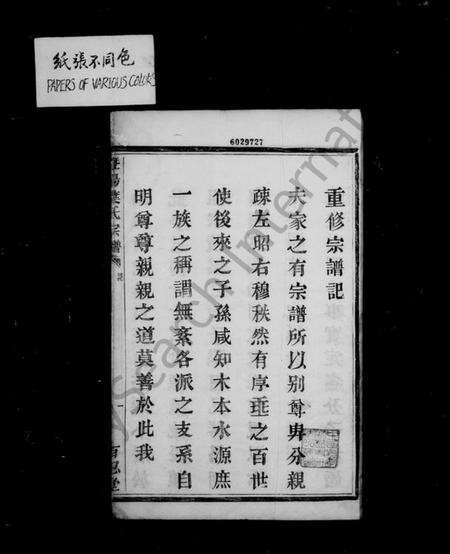 紙張不同色
PAPERS OF VARIOUS COLORS
6029727
重修宗譜記
夫家之有宗譜所以别尊卑分親
疎左昭右穆秩然有序垂之百世
使後來之子孫咸知木本水源庶
一族之稱謂無紊各派之支系自
明尊尊親親之道莫善於此我
氏宗譜
記
一